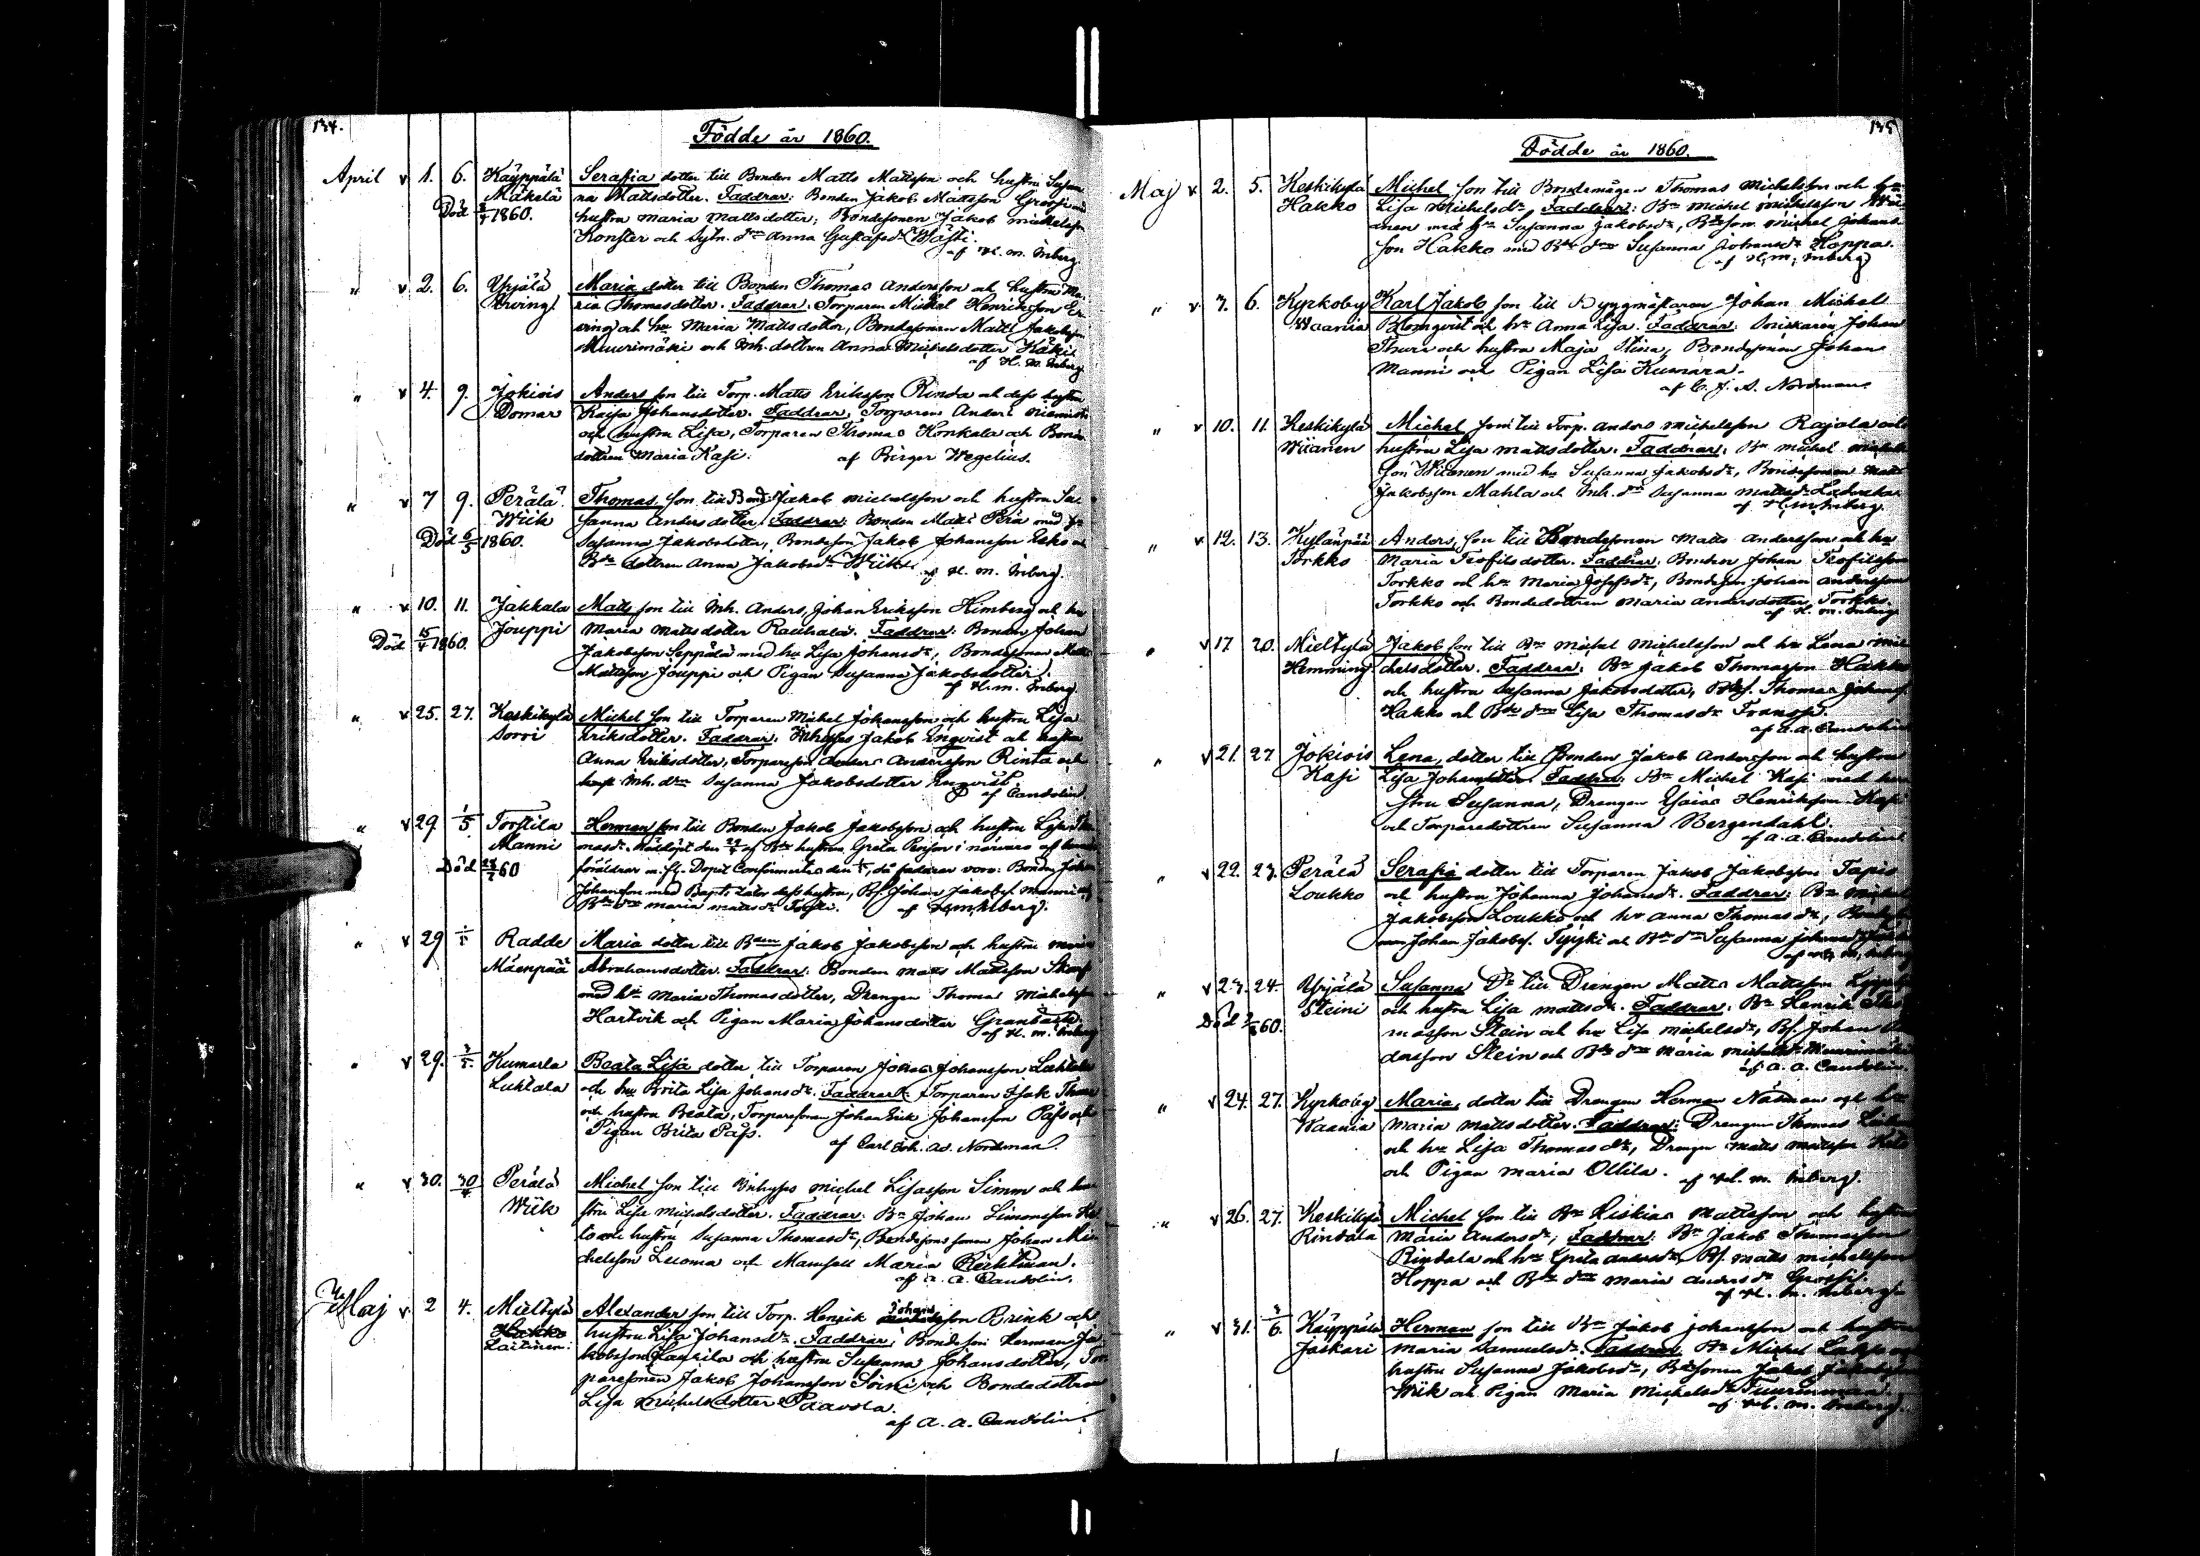 134.
Födde år 1860.
April v 1. 6. Käyppälä Serafia dotter till Bonden Matts Mattsson och hustru Susan
Mäkelä na Mattsdotter. Faddrar: Bonden Jakob Mattsson Grossi
Död 1860. hustru Maria Mattsdotter; Bondesonen Jakob Michelsson
Konster och Sytn. d:n Anna Gustafsd:r Wästi.
af H. M. Inberg.
" v 2. 6. Yrjälä Maria dotter till Bonden Thomas Andersson och hustru Ma-
Erving ria Thomasdotter. Faddrar: Torparen Michel Henriksson Er
ving och h:u Maria Mattsdotter, Bondesonen Matts Jakobsson
Muurimäki och Inh. dottren Anna Michelsdotter Käki
af H. M. Inberg.
" v 4. 9. Jokiois Anders son till Torp. Matts Eriksson Rinda och dess hustru
Domar Kaisa Johansdotter. Faddrar: Torparen Anders
och hustru Lisa, Torparen Thomas Honkala och Bonde
dottren Maria Kasi. af Birger Wegelius.
" v 7 9. Perälä Thomas son till Bond. Jakob Michelsson och hustru Su-
Wiik sanna Andersdotter. Faddrar: Bonden Matts Perä med h:u
Död 6/5 1860. Susanna Jakobsdotter, Bondeson Jakob Johansson Esko och
B:de dottren Anna Jakobsd:r Wiik. af H. M. Inberg.
" v 10. 11. Jakkala Matts son till Inh. Anders Johan Eriksson Himberg och h:u
Jouppi Maria Mattsdotter Rauhala. Faddrar: Bonden Johan
Död 1860. Jakobsson Seppälä med h:u Lisa Johansd:r, Bondesonen Matts
Mattsson Jouppi och Pigan Susanna Jakobsdotter.
af H. M. Inberg.
" v 25. 27. Keskikylä Michel son till Torparen Michel Johansson och hustru Lisa
Sorri Eriksdotter. Faddrar: Inhyses Jakob Enqvist och hustru
Anna Eriksdotter, Torparesson Anders Andersson Rinta och
Inh. d:ren Susanna Jakobsdotter Enqvist.
af Candolin.
" v 29 1/5 Torstila Herman son till Bonden Jakob Jakobsson och hustru Lisa Tho
Manni masd:r. Nöddöpt den af B:de hustrun Greta i närvaro af
Död 60 föräldrar m. fl. Dopet Confirmerades den, då faddrar voro: Bonden Johan
Johansson med dess hustru, Bs. Johan Jakobs. Manni och
B:de d:ren Maria Mattsd:r af H. M. Inberg.
" v 29 1/5 Radde Maria dotter till B:den Jakob Jakobsson och hustru Maria
Mäenpää Abrahamsdotter. Faddrar: Bonden Matts Mattsson
med h:u Maria Thomasdotter, Drengen Thomas Michelsson
Hartvik och Pigan Maria Johansdotter Granbacka.
af H. M. Inberg
" v 29. 3/5. Kumarla Beata Lisa dotter till Torparen Jakob Johansson Luhtala
Luhtala och h:u Brita Lisa Johansd:r. Faddrar: Torparen Isak
och hustru Beata, Torparesonen Johan Erik Johansson Pass och
Pigan Brita Pass. af Carl Joh. Ad. Nordman.
" v 30. 30/4 Perälä Michel son till Inhyses Michel Lisasson Simm och hu-
Wiik stru Lisa Michelsdotter. Faddrar: B:n Johan Simonsson
och hustru Susanna Thomasd:r, Bondesonen Johan Mi-
chelsson Luoma och Mamsell Maria Rechtman.
af A. A. Candolin.
Maj v 2 4. Mieltylä Alexander son till Torp. Henrik Johansson Brink och
Laitinen. hustru Lisa Johansd:r. Faddrar: Bondeson Herman Ja-
kobsson Laurila och hustru Susanna Johansdotter, Tor
paresonen Jakob Johansson Soini och Bondedottren
Lisa Michelsdotter Paavola.
af A. A. Candolin.
135
Födde år 1860.
Maj v 2. 5. Keskikylä Michel son till Bondemågen Thomas Michelsson och h:u
Hakko Lisa Michelsd:r, Faddrar: B:n Michel Michelsson Wii
anen med h:u Susanna Jakobsd:r, B:deson Michel Johans
son Hakko med B:de d:ren Susanna Johansd:r Hoppa.
af H. M. Inberg
" v 3. 6. Kyrkoby Karl Jakob son till Byggmästaren Johan Michel
Waania Blomqvist och h:u Anna Lisa. Faddrar: Snickaren Johan
Thure och hustru Maja Stina, Bondesonen Johan
Manni och Pigan Lisa Kumara.
af C. J. A. Nordman.
" v 10. 11. Keskikylä Michel son till Torp. Anders Michelsson Rajala och
Wiianen hustru Lisa Mattsdotter. Faddrar: B:n Michel Michels
son Wiianen med h:u Susanna Jakobsd:r, Bondesonen Matts
Jakobsson Mahla och Inh. d:ren Susanna Mattsd:r
af H. M. Inberg.
" v 12. 13. Kylänpää Anders, son till Bondesonen Matts Andersson och h:u
Torkko Maria Teofilsdotter. Faddrar: Bonden Johan Teofilsson
Torkko och h:u Maria Josefsd:r, Bondeson Johan Andersson
Torkko och Bondedottren Maria Andersdotter Torkko.
af H. M. Inberg
" v 17 20. Mieltylä Jakob son till B:n Michel Michelsson och h:u Lena Mi
Hemming chelsdotter. Faddrar: B:n Jakob Thomasson Hakko
och hustru Susanna Jakobsdotter, B:des. Thomas Johans.
Hakko och B:de d:ren Lisa Thomasd:r Fransi.
af A. A. Candolin
" v 21. 27 Jokiois Lena, dotter till Bonden Jakob Andersson och hustru
Kasi Lisa Johansdotter. Faddrar: B:n Michel Kasi med hu
stru Susanna, Drengen Esaias Henriksson Kasi
och Torparedottren Susanna Bergendahl.
af A. A. Candolin
" v 22. 23. Perälä Serafia dotter till Torparen Jakob Jakobsson Tapio
Loukko och hustru Johanna Johansd:r. Faddrar: B:n Michel
Jakobsson Loukko och h:u Anna Thomasd:r,
Johan Jakobs. Typpi och B:de d:ren Susanna
" v 23. 24. Yrjälä Susanna d:r till Drengen Matts Mattsson
Steini och hustru Lisa Mattsd:r. Faddrar: B:n Henrik Tho
Död 60. masson Stein och h:u Lisa Michelsd:r, Bs. Johan An
dersson Stein och B:de d:ren Maria Michelsd:r
af A. A. Candolin.
" v 24. 27. Kyrkoby Maria, dotter till Drengen Herman Näsman och h:u
Waania Maria Mattsdotter. Faddrar: Drengen Thomas
och h:u Lisa Thomasd:r, Drengen Matts Mattsson
och Pigan Maria Ollila. af H. M. Inberg.
" v 26. 27. Keskikylä Michel son till B:n Hiskias Mattsson och hustru
Rindala Maria Andersd:r, Faddrar: B:n Jakob Thomasson
Rindala och h:u Greta Andersd:r, Bs. Matts Michelsson
Hoppa och B:de d:ren Maria Andersd:r Grossi.
af H. M. Inberg
" v 31. 3/6. Käyppälä Herman son till B:n Jakob Johansson och hustru
Jaskari Maria Samuelsd:r. Faddrar: B:n Michel
hustru Susanna Jakobsd:r, B:desonen Jakob
Wiik och Pigan Maria Michelsd:r Tuurinmaa.
af H. M. Inberg.